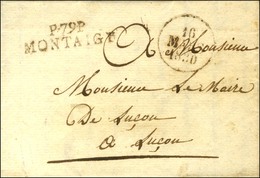 P.79.P.
MONTAIGU
16
1830
A Monsieur
Monsieur Le Maire
De Luçon
a Luçon